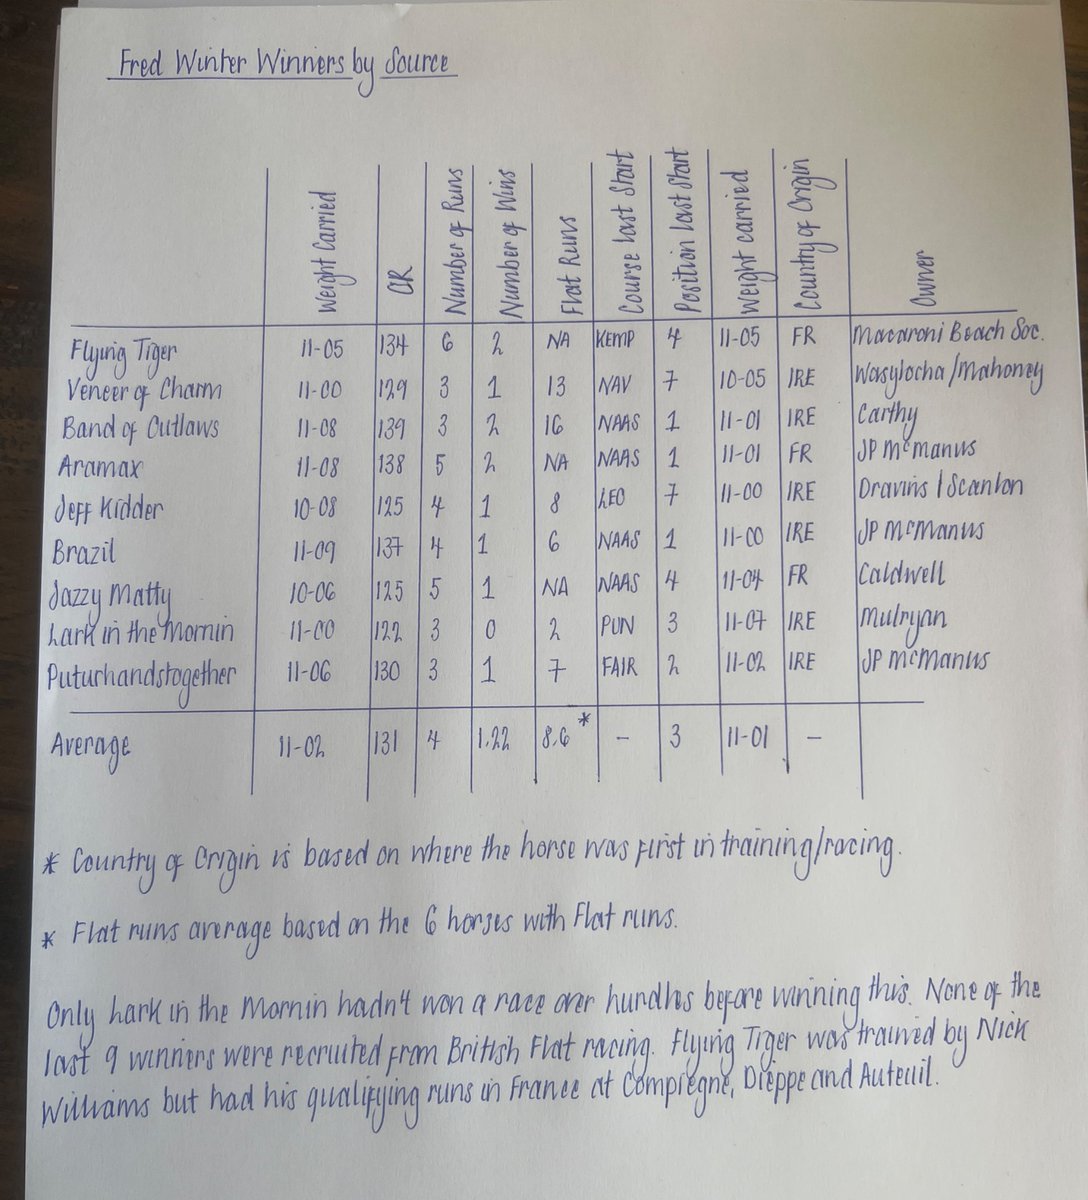 Fred Winter Winners by Source
Weight Carried OR Number of Runs Number of Wins Flat Runs Course Last Start Position Last Start Weight carried Country of Origin Owner
Flying Tiger 11-05 134 6 2 NA KEMP 4 11-05 FR Macaroni Beach Soc.
Veneer of Charm 11-00 129 3 1 13 NAV 7 10-05 IRE Wasylocha/Mahoney
Band of Outlaws 11-08 139 3 2 16 NAAS 1 11-01 IRE Carthy
Aramax 11-08 138 5 2 NA NAAS 1 11-01 FR JP McManus
Jeff Kidder 10-08 125 4 1 8 LEO 7 11-00 IRE Dravins/Scanlon
Brazil 11-09 137 4 1 6 NAAS 1 11-00 IRE JP McManus
Jazzy Matty 10-06 125 5 1 NA NAAS 4 11-04 FR Caldwell
Lark in the Mornin 11-00 122 3 0 2 PUN 3 11-07 IRE Mulryan
Puturhandstogether 11-06 130 3 1 7 FAIR 2 11-02 IRE JP McManus
Average 11-02 131 4 1.22 8.6* - 3 11-01 -
* Country of Origin is based on where the horse was first in training/racing.
* Flat runs average based on the 6 horses with Flat runs.
Only Lark in the Mornin hadn't won a race over hurdles before winning this. None of the
last 9 winners were recruited from British Flat racing. Flying Tiger was trained by Nick
Williams but had his qualifying runs in France at Compiegne, Dieppe and Auteuil.